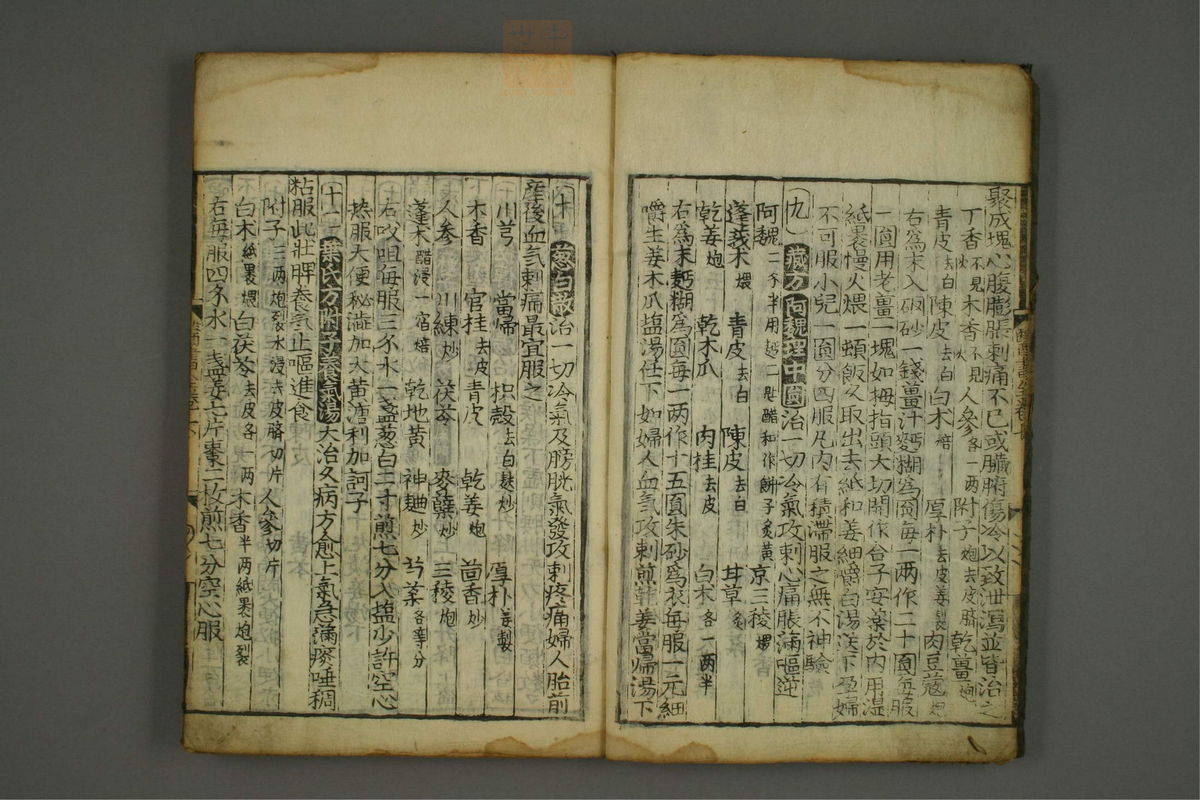 聚成塊心腹膨脹刺痛不已或臟腑傷冷以致泄瀉並皆治之
丁香不見火木香不見火人參各一兩附子炮去皮臍乾薑炮
青皮去白陳皮去白白朮焙厚朴去皮姜製肉豆蔻炮
右為末入硇砂一錢薑汁麪糊為圓每一兩作二十圓每服
一圓用老薑一塊如拇指頭大切開作合子安藥於內用濕
紙裹慢火煨一頓飯久取出去紙和姜細嚼白湯送下孕婦
不可服小兒一圓分四服凡內有積滯服之無不神驗
九 藏方阿魏理中圓 治一切冷氣攻刺心痛脹滿嘔逆
阿魏二分半用麪二匙醋和作餅子炙黃京三稜煨
蓬莪朮煨 青皮去白 陳皮去白 甘草
乾姜炮 乾木瓜 肉桂去皮 白朮各一兩半
右為末麪糊為圓每一兩作十五圓朱砂為衣每服一元細
嚼生姜木瓜塩湯任下如婦人血氣攻刺煎乾姜當歸湯下
十 葱白散 治一切冷氣及膀胱氣發攻刺疼痛婦人胎前
產後血氣刺痛最宜服之
川芎 當歸 枳殼去白麩炒 厚朴姜製
木香 官桂去皮 青皮 乾姜炮 茴香炒
人參 川練炒 茯苓 麥蘖炒 三稜炮
蓬朮醋浸一宿焙 乾地黃 神麯炒 芍藥各等分
右㕮咀每服三分水一盞葱白二寸煎七分入塩少許空心
热服大便秘澁加大黃溏利加訶子
十一 葉氏方附子養氣湯 大治久病方愈上氣急滿痰唾稠
粘服此壯脾養氣止嘔進食
附子二兩炮裂水浸去皮臍切片 人參切片
白朮紙裹煨 白茯苓去皮各一兩 木香半兩紙裹炮裂
右每服四分水一盞姜七片棗二枚煎七分空心服